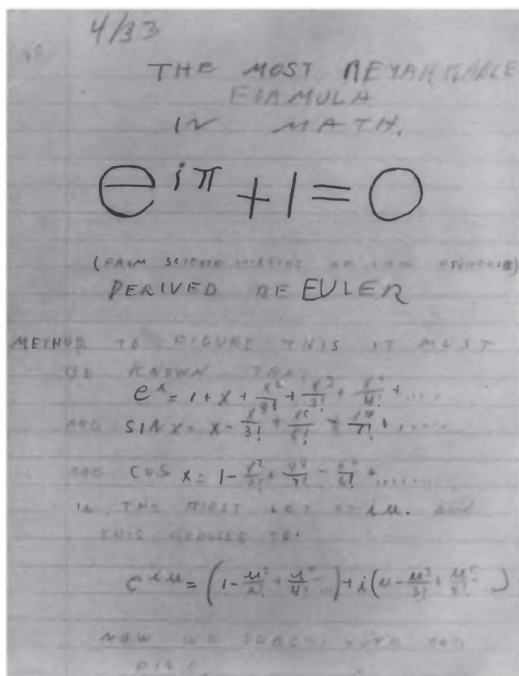 4/33
THE MOST REMARKABLE
FORMULA
IN MATH.
e^{iπ} + 1 = 0
(FROM SCIENCE HISTORY OF THE UNIVERSE)
DERIVED BE EULER
METHOD TO FIGURE THIS IT MUST
BE KNOWN THAT
e^x = 1 + x + x^2/2! + x^3/3! + x^4/4! + .....
AND SIN x = x - x^3/3! + x^5/5! - x^7/7! + .....
AND COS x = 1 - x^2/2! + x^4/ - x^6/6! + .......
IN THE FIRST LET x = iu. AND
THIS REDUCES TO:
e^{iu} = (1 - u^2/2! + u^4/4! ...) + i(u - u^3/3! + u^5/5! ...)
NOW WE